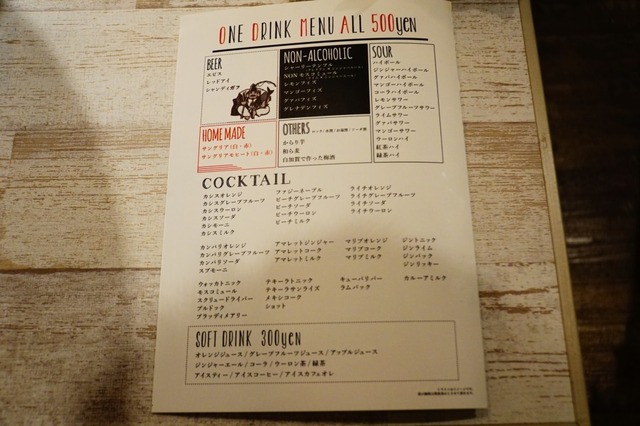 ONE DRINK MENU ALL 500yen
BEER
エビス
レッドアイ
シャンディガフ
NON-ALCOHOLIC
シャーリーテンプル
NONモスコミュール
レモンフィズ
マンゴーフィズ
グァバフィズ
グレナデンフィズ
SOUR
ハイボール
ジンジャーハイボール
グァバハイボール
マンゴーハイボール
コーラハイボール
レモンサワー
グレープフルーツサワー
ライムサワー
グァバサワー
マンゴーサワー
ウーロンハイ
紅茶ハイ
緑茶ハイ
HOME MADE
サングリア(白・赤)
サングリアモヒート(白・赤)
OTHERS
からり芋
和ら麦
白加賀で作った梅酒
COCKTAIL
カシスオレンジ
カシスグレープフルーツ
カシスウーロン
カシスソーダ
カシモーニ
カシスミルク
ファジーネーブル
ピーチグレープフルーツ
ピーチソーダ
ピーチウーロン
ピーチミルク
ライチオレンジ
ライチグレープフルーツ
ライチソーダ
ライチウーロン
カンパリオレンジ
カンパリグレープフルーツ
カンパリソーダ
スプモーニ
アマレットジンジャー
アマレットコーク
アマレットミルク
マリブオレンジ
マリブコーク
マリブミルク
ジントニック
ジンライム
ジンバック
ジンリッキー
ウォッカトニック
モスコミュール
スクリュードライバー
ブルドック
ブラッディメアリー
テキーラトニック
テキーラサンライズ
メキシコーク
ショット
キューバリバー
ラムバック
カルーアミルク
SOFT DRINK 300yen
オレンジジュース / グレープフルーツジュース / アップルジュース
ジンジャーエール / コーラ / ウーロン茶 / 緑茶
アイスティー / アイスコーヒー / アイスカフェオレ